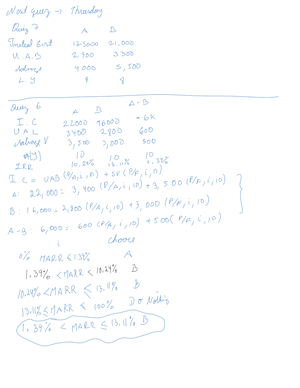 Next quiz → Thursday
Quiz 7
A B
Initial Cost 21,000
U.A.B 2900 3300
Salvage 4000 5,500
L.Y 4 8
Quiz 6
A B A-B
I.C 22000 16000 - 6K
UAB 3400 2800 600
Salvage V 3,500 3,000 500
n(y) 10 10 10
IRR
I.C = UAB (P/A, i, n) + SV (P/F, i, n)
A: 22,000 = 3,400 (P/A, i, 10) + 3500 (P/F, i, 10)
B: 16,000 = 2,800 (P/A, i, 10) + 3,000 (P/F, i, 10)
A-B: 6,000 = 600 (P/A, i, 10) + 500 (P/F, i, 10)
i choose
0% MARR ≤ A
1.39% < MARR < 10.24% B
10.24% < MARR ≤ 13.11% B
13.11% ≤ MARR < 100% Do Nothing
1.39% < MARR ≤ 13.11% B